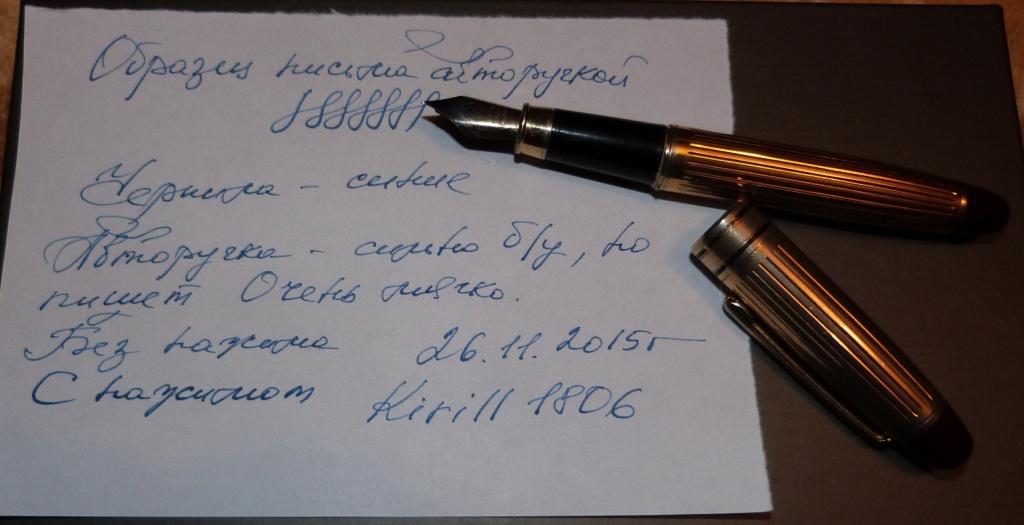 Образец письма авторучкой
Чернила - синие
Авторучка - сильно б/у, но
пишет Очень мягко.
Без нажима 26.11.2015г
С нажимом Kirill 1806